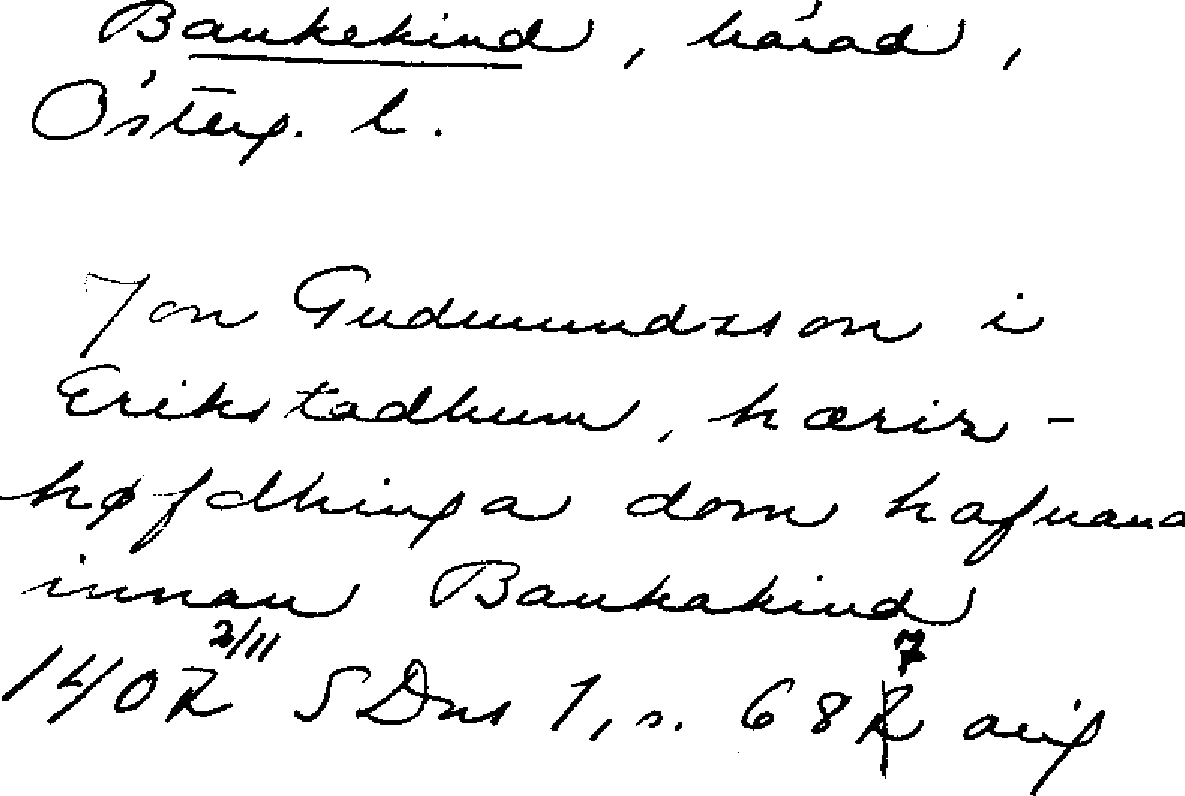 Bankekind, härad,
Österg. l.
Jon Gudmundzson i
Erikstadhum, hæriz-
høfdhinga dom hafuand
innan Bankakind
1407 2/11 SDns 1, s. 687 orig